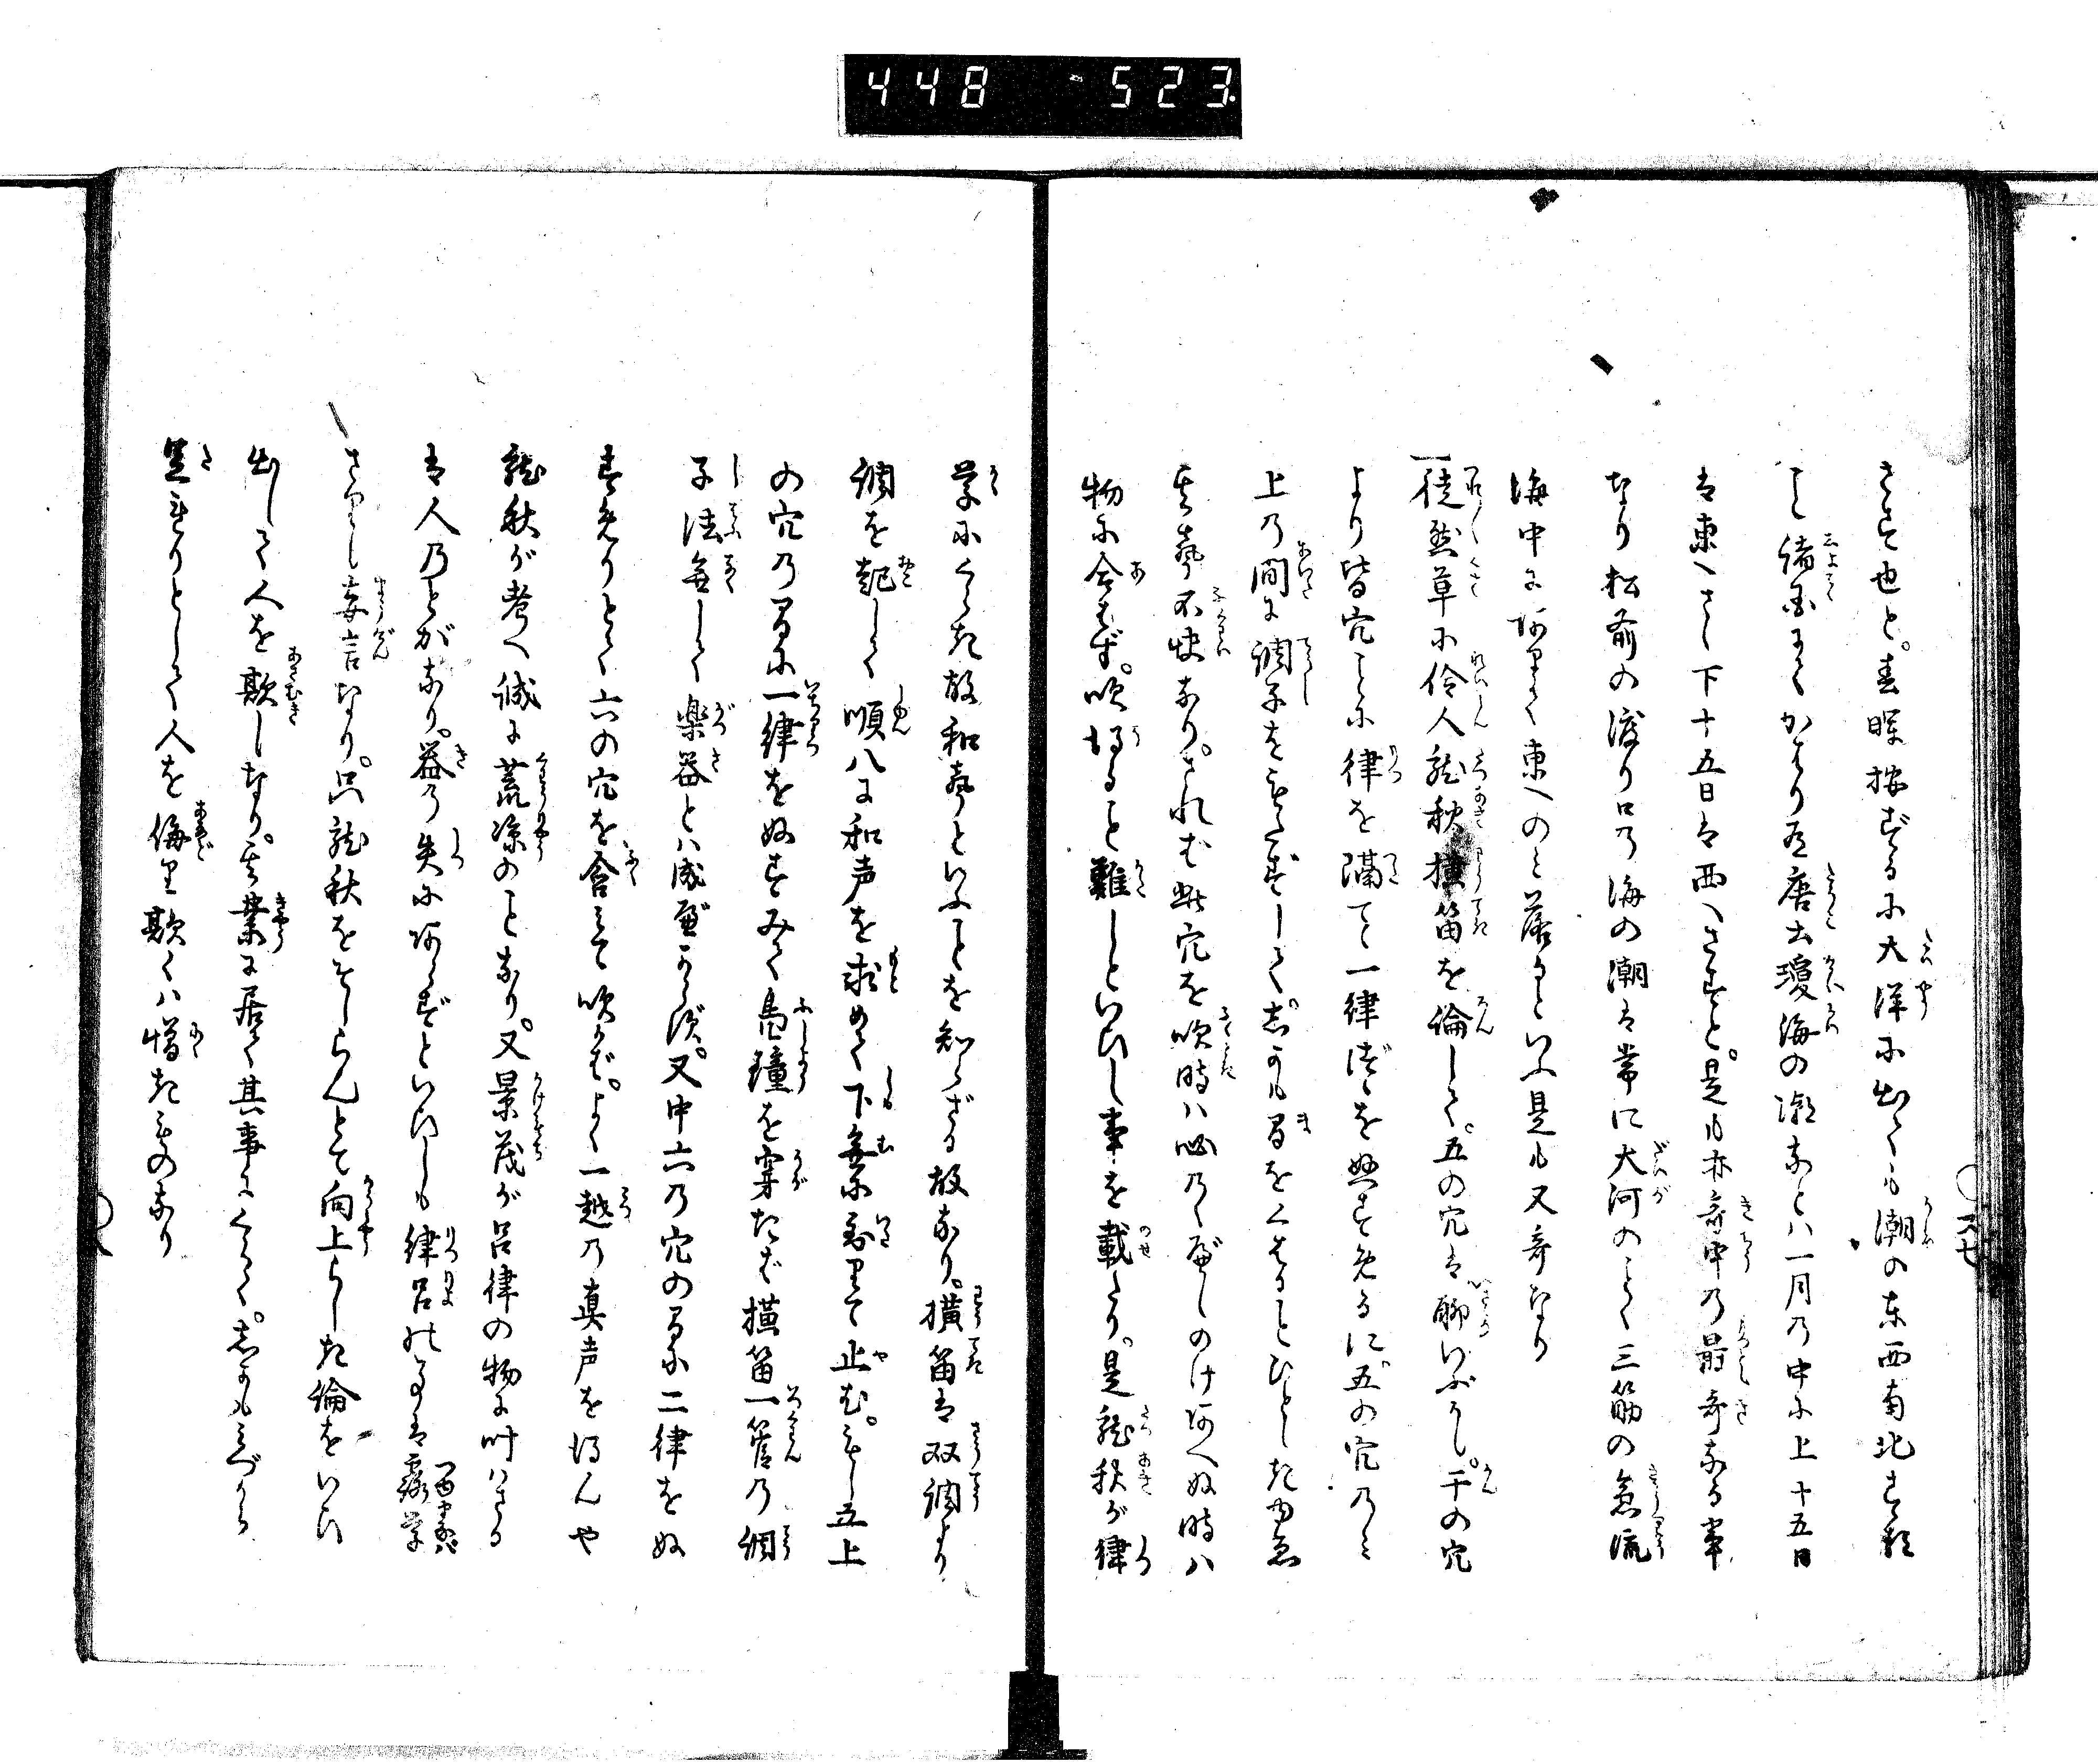 448 523
さす也と。春暉按ずるに大洋に出ても潮の東西南北にさす程
こと諸国にてかはり有唐土瓊海の潮などハ一月の中に上十五日
は東へさし下十五日は西へさすと。是も亦奇中の最奇なる事
なり松前の渡り口の海の潮は常に大河のことく三筋の急流
海中にありて東へのミ落るといふ是も又奇なり
一徒然草に伶人龍秋横笛を論して。五の穴は聊いぶかし。干の穴
より皆穴ことに律を隔てゝ一律づゝをぬすめるに。五の穴のミ
上の間に調子をもたずして。しかも間をくはることひとしき故
其声不快なり。されば此穴を吹時ハ必のくべしのけあへぬ時ハ
物に合はず。吹得ること難しといひし事を載たり。是龍秋が律
学にくらき故和声といふことを知らざる故なり。横笛は双調より
調を起して順八に和声を求めて下無に至りて止む。もし五上
の穴の間に一律をぬすみて鳧鐘を穿たば横笛一管の調
子法無して楽器とハ成べからず。又中六の穴の間に二律をぬ
すめりとて六の穴を含ミて吹かば。よく一越の真声を得んや
龍秋が考へ誠に荒凉のことなり。又景茂が呂律の物に叶はざる
は人のとがなり。器の失にあらずといひしも律呂の事は露学
さりし妄言なり。只龍秋をそしらんとて向上らしき論をいひ
出して人を欺しなり。其業に居て其事にくらく。しかもミづから
足れりとして人を侮り欺くハ憎きものなり